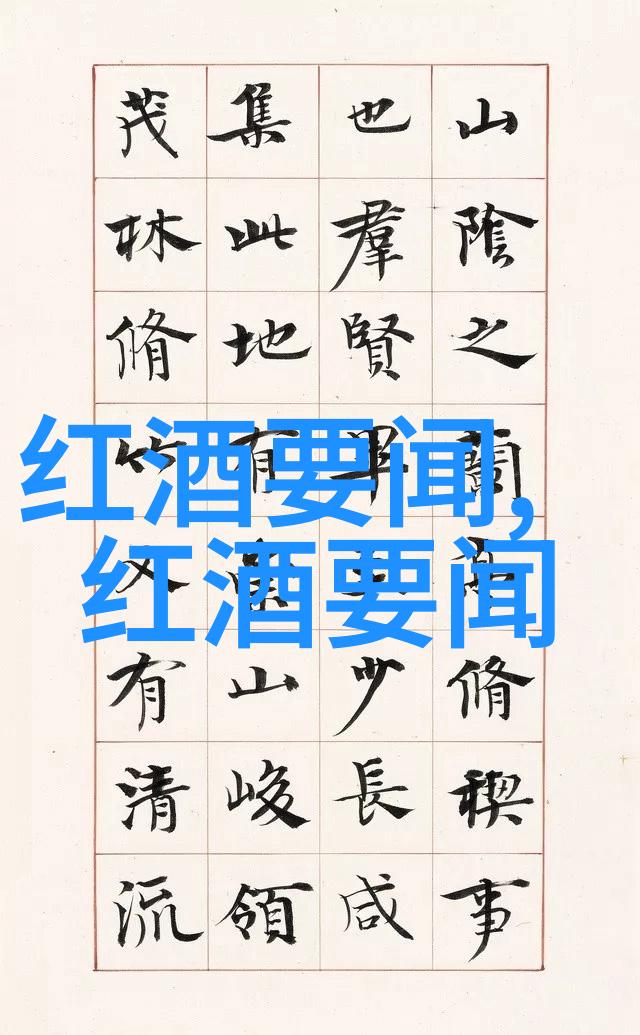 山陰之蘭亭脩稧事
也羣賢畢至少長咸
集此地有崇山峻領
茂林脩竹又有清流
红酒要闻,
红酒要闻